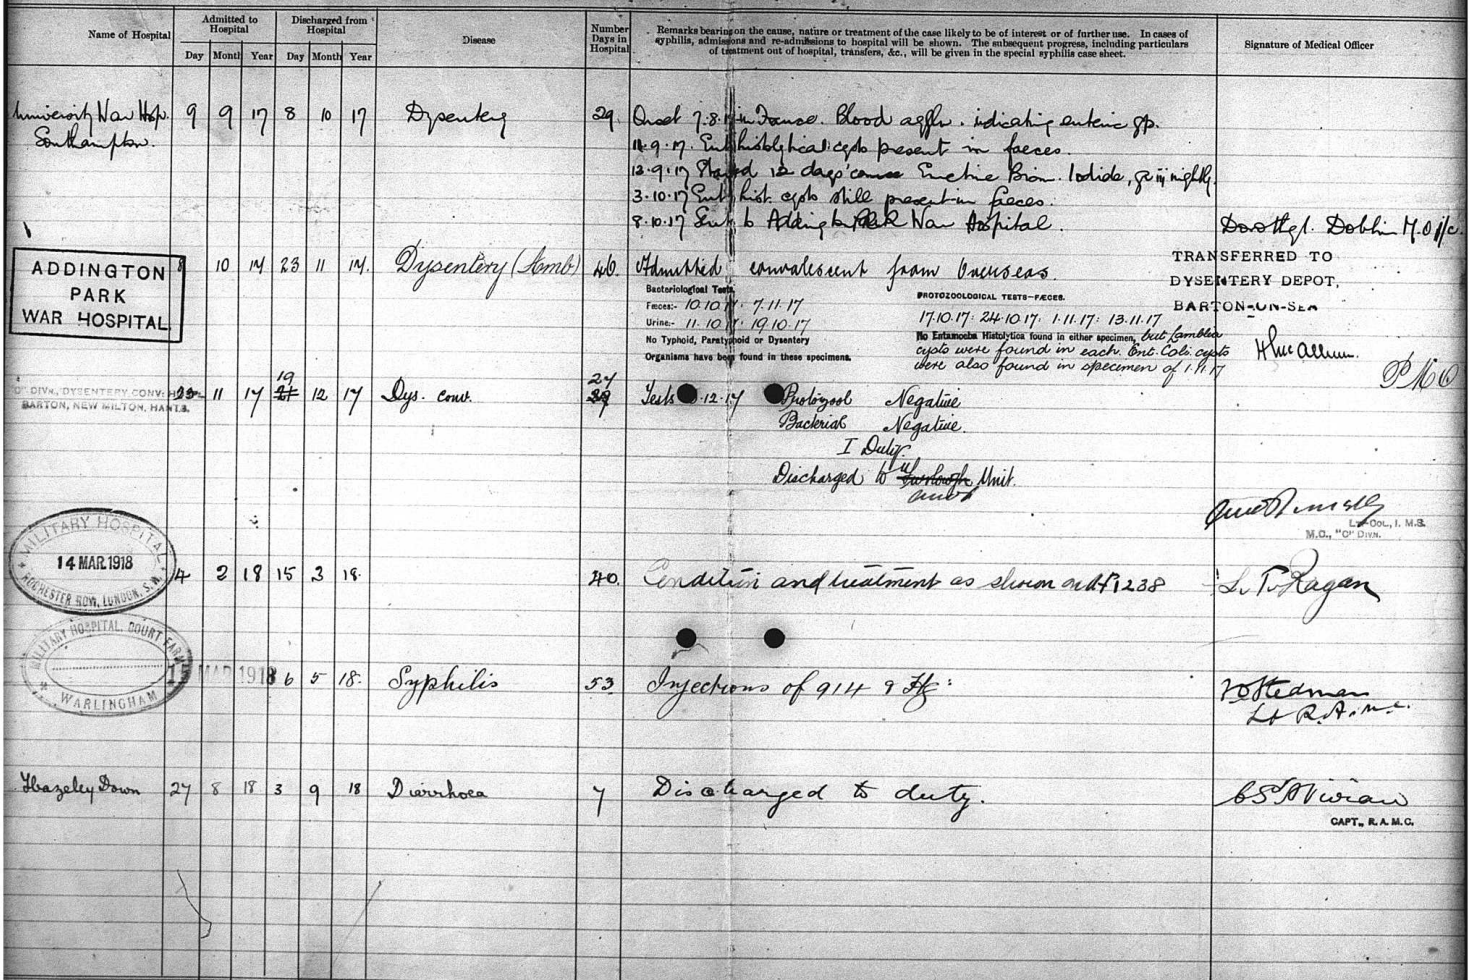 Name of Hospital
Admitted to Hospital
Discharged from Hospital
Day Month Year Day Month Year
Disease
Number Days in Hospital
Remarks bearing on the cause, nature or treatment of the case likely to be of interest or of further use. In cases of
syphilis, admissions and re-admissions to hospital will be shown. The subsequent progress, including particulars
of treatment out of hospital, transfers, &c., will be given in the special syphilis case sheet.
Signature of Medical Officer
University War Hosp. 9 9 17 8 10 17 Dysentery 29. Onset 7.8.17 in France. Blood aggln. indicating enteric gp.
Southampton.
11.9.17. Ent. histolytica cysts present in faeces.
12.9.17 Started 12 days' course Emetine Bism. Iodide, gr iij nightly.
3.10.17 Ent. hist. cysts still present in faeces.
8.10.17 Sent to Addington Park War Hospital.
Dobbin M.O i/c.
ADDINGTON
PARK
WAR HOSPITAL
8 10 17 23 11 17. Dysentery (Amb) 46. Admitted convalescent from Overseas.
TRANSFERRED TO
DYSENTERY DEPOT,
BARTON-ON-SEA
Bacteriological Tests
Fæces:- 10.10.17. 7.11.17
Urine:- 11.10.17. 19.10.17
No Typhoid, Paratyphoid or Dysentery
Organisms have been found in these specimens.
PROTOZOOLOGICAL TESTS-FÆCES.
17.10.17: 24.10.17: 1.11.17: 13.11.17
No Entamoeba Histolytica found in either specimen, but Lamblia
cysts were found in each. Ent. Coli. cysts
were also found in specimen of 1.11.17
PMO
"C" DIVN., DYSENTERY CONV: H
BARTON, NEW MILTON, HANTS.
23 11 17 19 21 12 17 Dys. conv. 27 Tests .12.17 Protozool Negative
Bacterial Negative.
I Duty.
Discharged to furlough Unit.
LT-COL, I. M.S.
M.O., "C" DIVN.
MILITARY HOSPITAL
14 MAR. 1918
ROCHESTER ROW, LONDON, S.W.
4 2 18 15 3 18. 40. Condition and treatment as shown on AF I 1238 L. T. Ragan
MILITARY HOSPITAL, COURT FARM
WARLINGHAM
15 MAR 1918 6 5 18. Syphilis 53 Injections of 914 & Hg: Stedman
Lt R.A.M.C.
Hazeley Down 27 8 18 3 9 18 Diarrhoea 7 Discharged to duty. Vivian
CAPT., R.A.M.C.